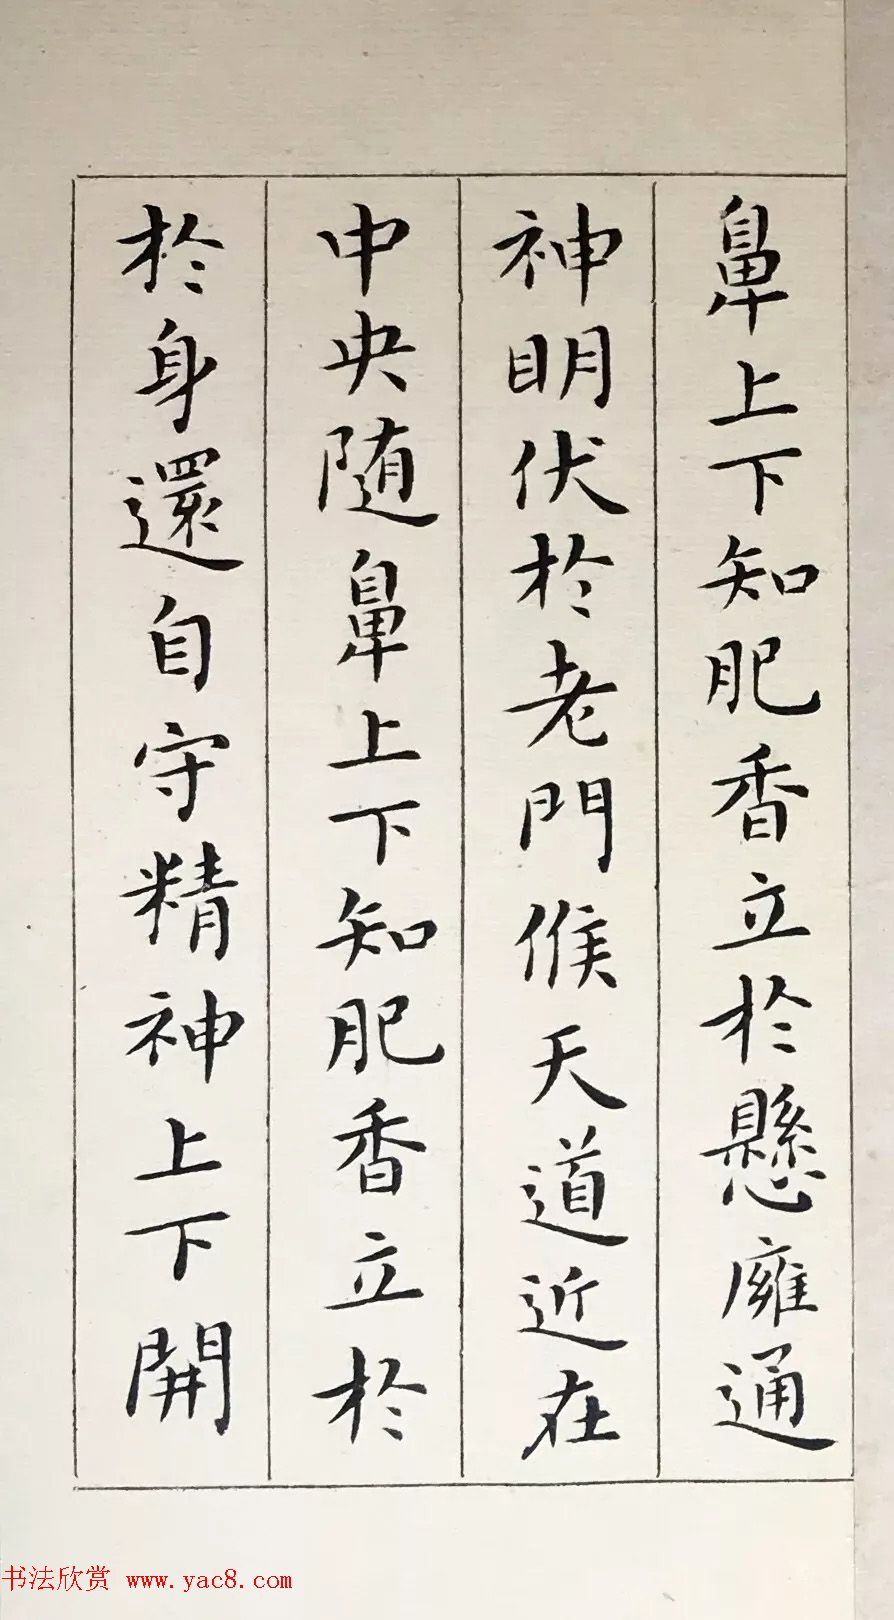 鼻上下知肥香立於懸廱通
神明伏於老門候天道近在
中央随鼻上下知肥香立於
於身還自守精神上下開
书法欣赏 www.yac8.com